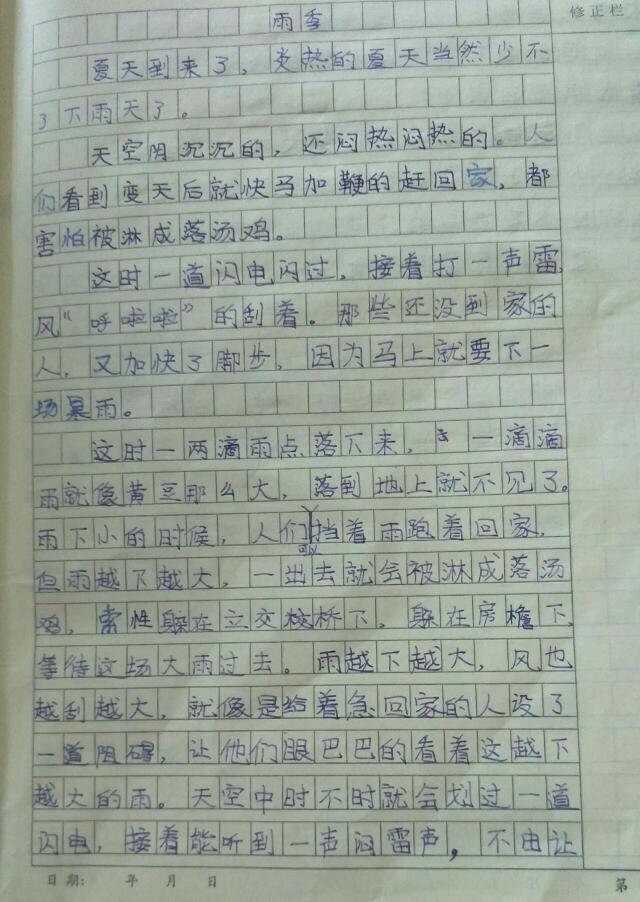 修正栏
雨季
夏天到来了，炎热的夏天当然少不
了下雨天了。
天空阴沉沉的，还闷热闷热的。人
们看到变天后就快马加鞭的赶回家，都
害怕被淋成落汤鸡。
这时一道闪电闪过，接着打一声雷，
风“呼啦啦”的刮着。那些还没到家的
人，又加快了脚步，因为马上就要下一
场暴雨。
这时一两滴雨点落下来，一滴滴
雨就像黄豆那么大，落到地上就不见了。
雨下小的时候，人们挡着雨跑着回家，
但雨越下越大，一出去就会被淋成落汤
鸡，索性躲在立交桥下，躲在房檐下，
等待这场大雨过去。雨越下越大，风也
越刮越大，就像是给着急回家的人设了
一道阻碍，让他们眼巴巴的看着这越下
越大的雨。天空中时不时就会划过一道
闪电，接着能听到一声闷雷声，不由让
日期： 年 月 日
第